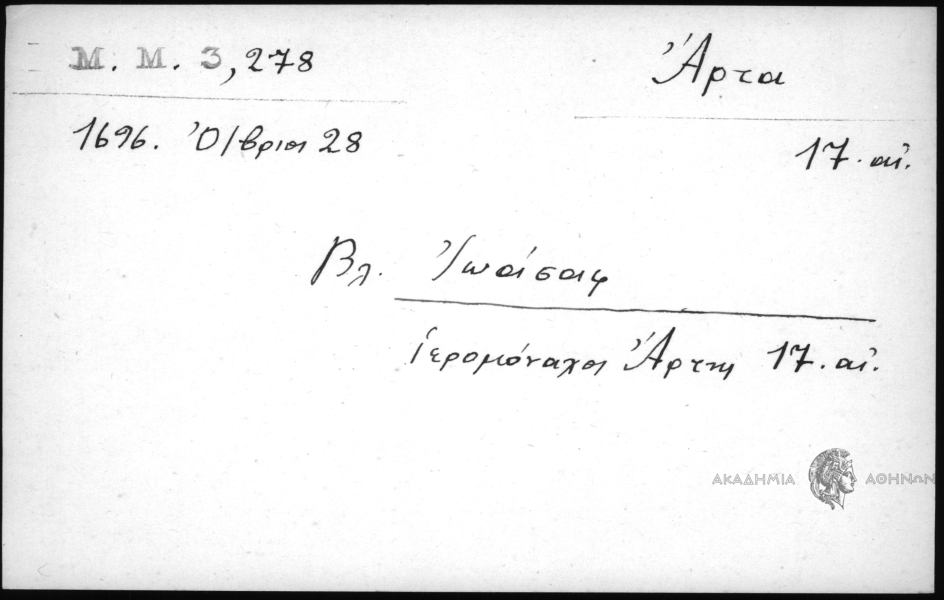 M. M. 3,278
Ἄρτα
1696. Ὀ/βριος 28
17. αἰ.
Βλ. Ἰωάσαφ
ἱερομόναχος Ἄρτης 17. αἰ.
ΑΚΑΔΗΜΙΑ ΑΘΗΝΩΝ